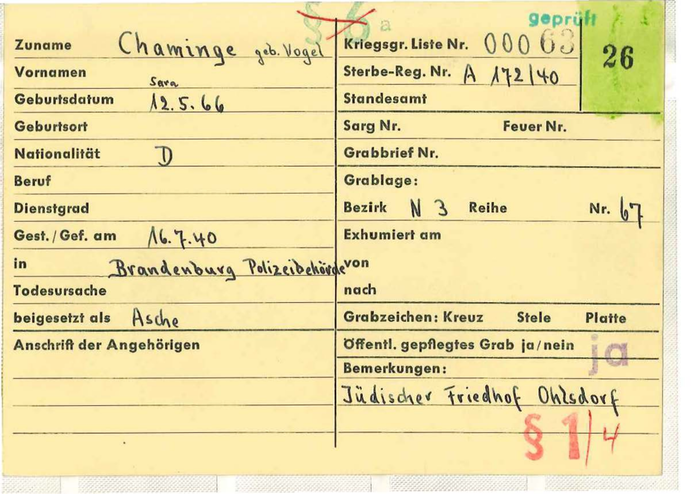 § 6 a
geprüft
Zuname Chaminge geb. Vogel
Vornamen Sara
Geburtsdatum 12.5.66
Geburtsort
Nationalität D
Beruf
Dienstgrad
Gest./Gef. am 16.7.40
in Brandenburg Polizeibehörde
Todesursache
beigesetzt als Asche
Anschrift der Angehörigen
Kriegsgr. Liste Nr. 00063
26
Sterbe-Reg. Nr. A 172/40
Standesamt
Sarg Nr. Feuer Nr.
Grabbrief Nr.
Grablage:
Bezirk N 3 Reihe Nr. 67
Exhumiert am
von
nach
Grabzeichen: Kreuz Stele Platte
Öffentl. gepflegtes Grab ja/nein ja
Bemerkungen:
Jüdischer Friedhof Ohlsdorf
§ 1/4